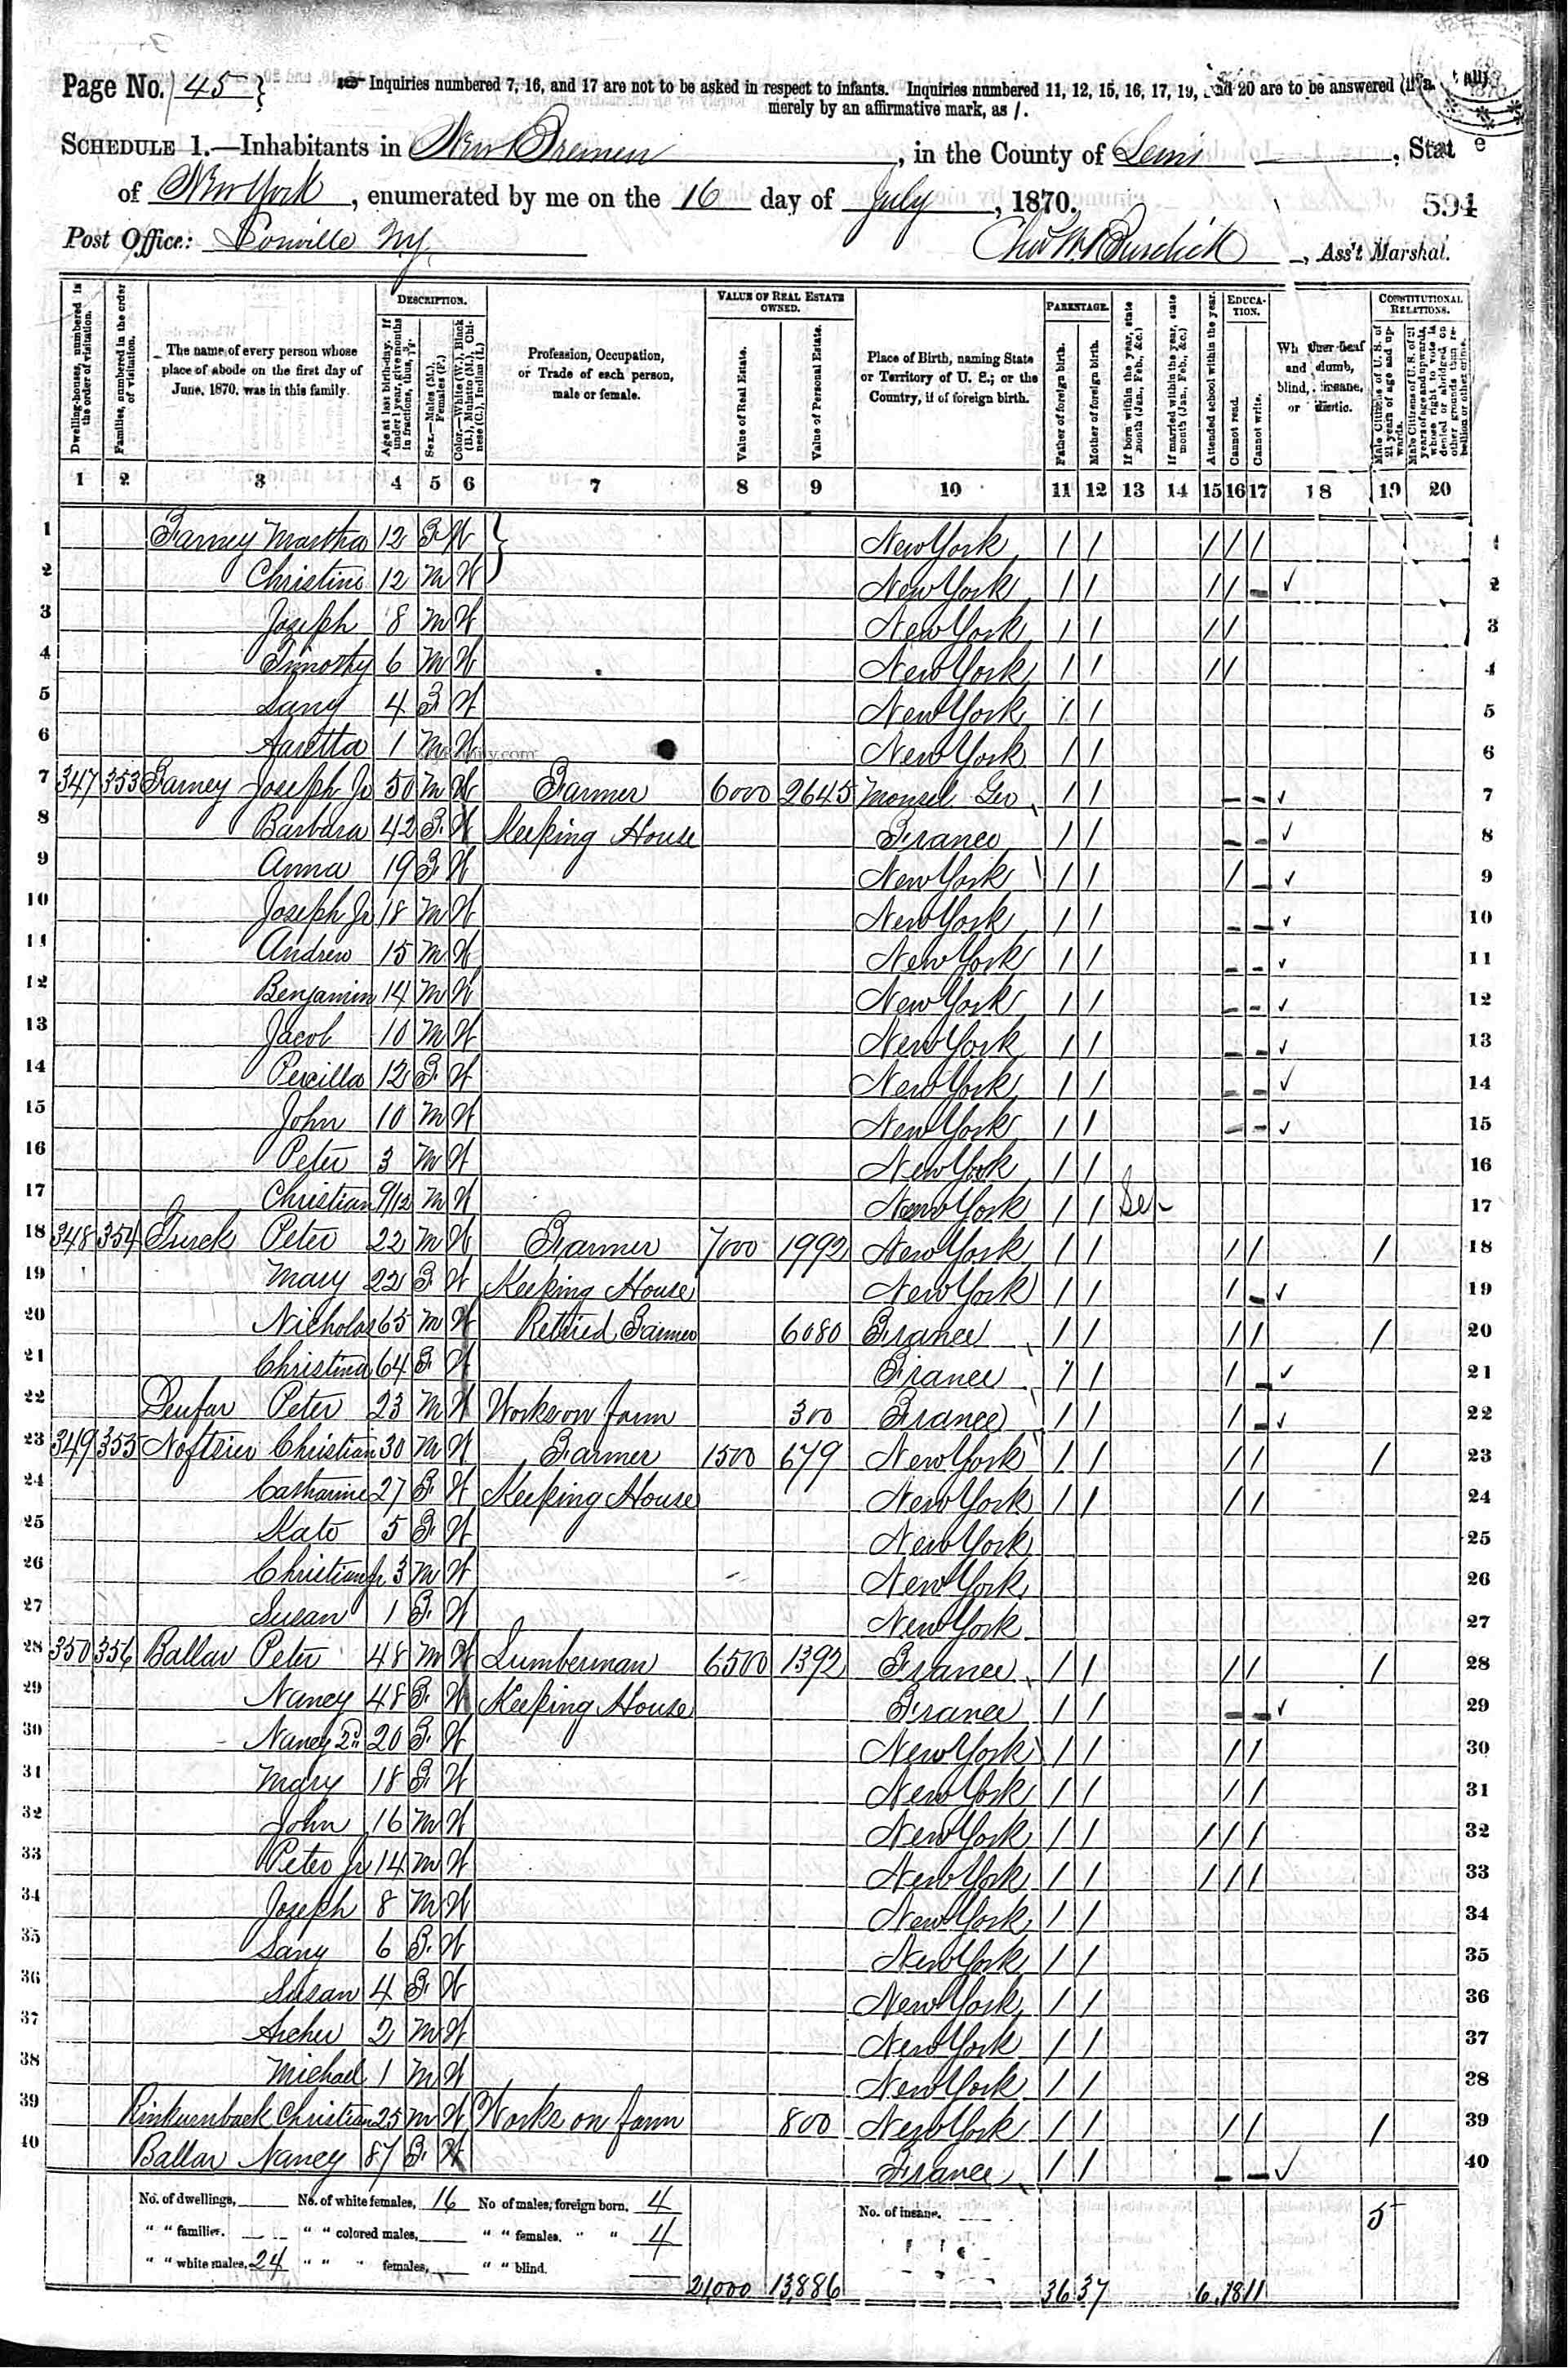 Page No. 45 } Inquiries numbered 7, 16, and 17 are not to be asked in respect to infants. Inquiries numbered 11, 12, 15, 16, 17, 19, and 20 are to be answered (if at all)
merely by an affirmative mark, as /.
SCHEDULE 1.—Inhabitants in New Bremen, in the County of Lewis, State
of New York, enumerated by me on the 16 day of July, 1870.
594
Post Office: Lonville N.Y. Chas W. Burdick, Ass't Marshal.
Dwelling-houses, numbered in the order of visitation. Families, numbered in the order of visitation. The name of every person whose place of abode on the first day of June, 1870, was in this family. DESCRIPTION. Age at last birth-day. If under 1 year, give months in fractions, thus, 3/12. Sex.—Males (M.), Females (F.) Color.—White (W.), Black (B.), Mulatto (M.), Chinese (C.), Indian (I.) Profession, Occupation, or Trade of each person, male or female. VALUE OF REAL ESTATE OWNED. Value of Real Estate. Value of Personal Estate. Place of Birth, naming State or Territory of U. S.; or the Country, if of foreign birth. PARENTAGE. Father of foreign birth. Mother of foreign birth. If born within the year, state month (Jan., Feb., &c.) If married within the year, state month (Jan., Feb., &c.) Attended school within the year. EDUCATION. Cannot read. Cannot write. Whether deaf and dumb, blind, insane, or idiotic. CONSTITUTIONAL RELATIONS. Male Citizens of U. S. of 21 years of age and upwards. Male Citizens of U. S. of 21 years of age and upwards, whose right to vote is denied or abridged on other grounds than rebellion or other crime.
1 2 3 4 5 6 7 8 9 10 11 12 13 14 15 16 17 18 19 20
1 Farney Martha 12 F W } New York / / / / / 1
2 Christine 12 M W New York / / / / - ✓ 2
3 Joseph 8 M W New York / / / / 3
4 Timothy 6 M W New York / / / / 4
5 Lany 4 F W New York / / 5
6 Aaretta 1 M W New York / / 6
7 347 353 Farney Joseph Jr 50 M W Farmer 6000 2645 / / - - ✓ 7
8 Barbara 42 F W Keeping House France / / - - ✓ 8
9 Anna 19 F W New York / / / - ✓ 9
10 Joseph Jr 18 M W New York / / - - ✓ 10
11 Andrew 15 M W New York / / - - ✓ 11
12 Benjamin 14 M W New York / / - - ✓ 12
13 Jacob 10 M W New York / / - - ✓ 13
14 Percilla 12 F W New York / / - - ✓ 14
15 John 10 M W New York / / - - ✓ 15
16 Peter 3 M W New York / / 16
17 Christian 9/12 M W New York / / Sep 17
18 348 354 Turck Peter 22 M W Farmer 7000 1992 New York / / / / / 18
19 Mary 22 F W Keeping House New York / / / - ✓ 19
20 Nicholas 65 M W Retired Farmer 6080 France / / / / / 20
21 Christina 64 F W France / / / - ✓ 21
22 Peter 23 M W Works on farm 300 France / / / - ✓ 22
23 349 355 Noftsier Christian 30 M W Farmer 1500 679 New York / / / / / 23
24 Catharine 27 F W Keeping House New York / / / / 24
25 Kate 5 F W New York 25
26 Christian Jr 3 M W New York 26
27 Susan 1 F W New York 27
28 350 356 Ballar Peter 48 M W Lumberman 6500 1392 France / / / / / 28
29 Nancy 48 F W Keeping House France / / - - ✓ 29
30 Nancy 2d 20 F W New York / / / / 30
31 Mary 18 F W New York / / / / 31
32 John 16 M W New York / / / / / 32
33 Peter Jr 14 M W New York / / / / / 33
34 Joseph 8 M W New York / / 34
35 Lany 6 F W New York / / 35
36 Susan 4 F W New York / / 36
37 Archer 2 M W New York / / 37
38 Michael 1 M W New York / / 38
39 Rinkuenback Christian 25 M W Works on farm 800 New York / / / / / 39
40 Ballar Nancy 87 F W France / / - - ✓ 40
No. of dwellings, No. of white females, 16 No of males, foreign born. 4 No. of insane. 5
" " families. " " colored males, " " females. " " 4
" " white males, 24 " " " females, " " blind.
21,000 13,886 36 37 6 18 11